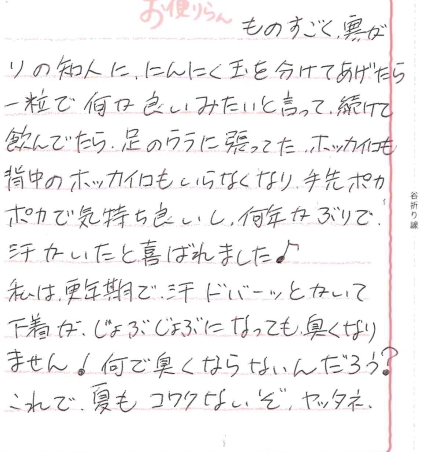 お便りらん
ものすごく、寒が
りの知人に、にんにく玉を分けてあげたら
一粒で何か良いみたいと言って、続けて
飲んでたら、足のウラに張ってた、ホッカイロも
背中のホッカイロもいらなくなり、手先ポカ
ポカで気持ち良いし、何年かぶりで、
汗かいたと喜ばれました♪
私は、更年期で、汗ドバーッとかいて
下着が、じょぶじょぶになっても、臭くなり
ません!何で臭くならないんだろう?
これで、夏もコワクないぞ、ヤッタネ、
谷折り線